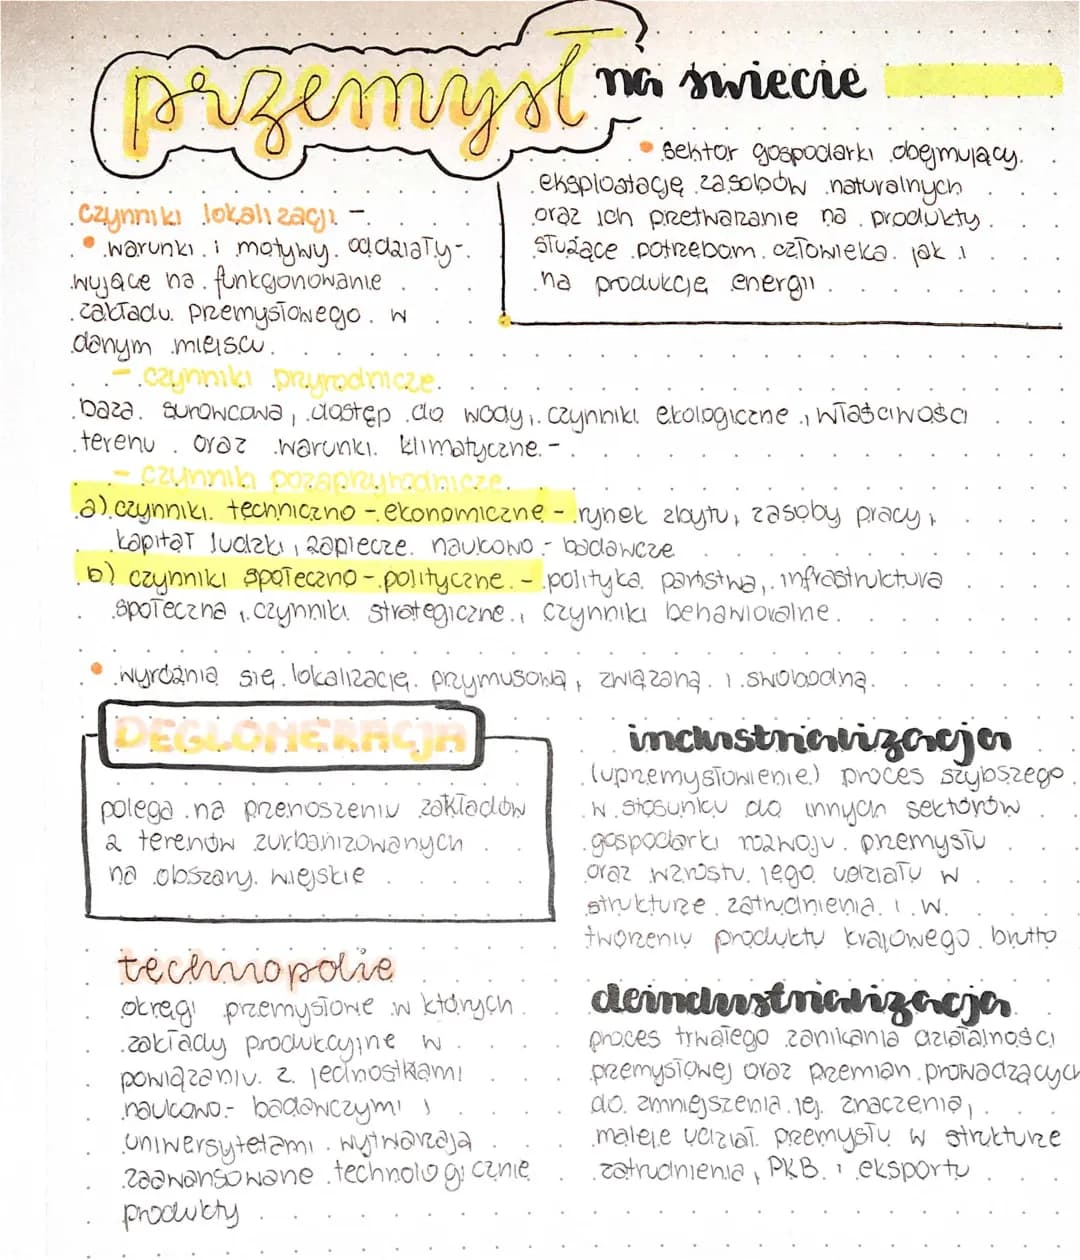 przemysł na świecie
• sektor gospodarki obejmujący
eksploatację zasobów naturalnych
oraz ich przetwarzanie na produkty
służące potrzebom człowieka jak i
na produkcję energii.
czynniki lokalizacji -
• warunki i motywy oddziały-
wujące na funkcjonowanie
zakładu przemysłowego w
danym miejscu.
- czynniki przyrodnicze.
baza surowcowa, dostęp do wody, czynniki ekologiczne, właściwości
terenu oraz warunki klimatyczne. -
- czynniki pozaprzyrodnicze.
a) czynniki techniczno - ekonomiczne - rynek zbytu, zasoby pracy,
kapitał ludzki, zaplecze naukowo - badawcze
b) czynniki społeczno - polityczne - polityka państwa, infrastruktura
społeczna, czynniki strategiczne, czynniki behawioralne.
• wyróżnia się lokalizację przymusową, związaną i swobodną.
DEGLOMERACJA
polega na przenoszeniu zakładów
z terenów zurbanizowanych
na obszary wiejskie
technopolie
okręgi przemysłowe w których
zakłady produkcyjne w
powiązaniu z jednostkami
naukowo - badawczymi i
uniwersytetami wytwarzają
zaawansowane technologicznie
produkty
industrializacja
(uprzemysłowienie) proces szybszego
w stosunku do innych sektorów
gospodarki rozwoju przemysłu
oraz wzrostu jego udziału w
strukturze zatrudnienia i w
tworzeniu produktu krajowego brutto
deindustrializacja
proces trwałego zanikania działalności
przemysłowej oraz przemian prowadzących
do zmniejszenia jej znaczenia,
maleje udział przemysłu w strukturze
zatrudnienia, PKB i eksportu